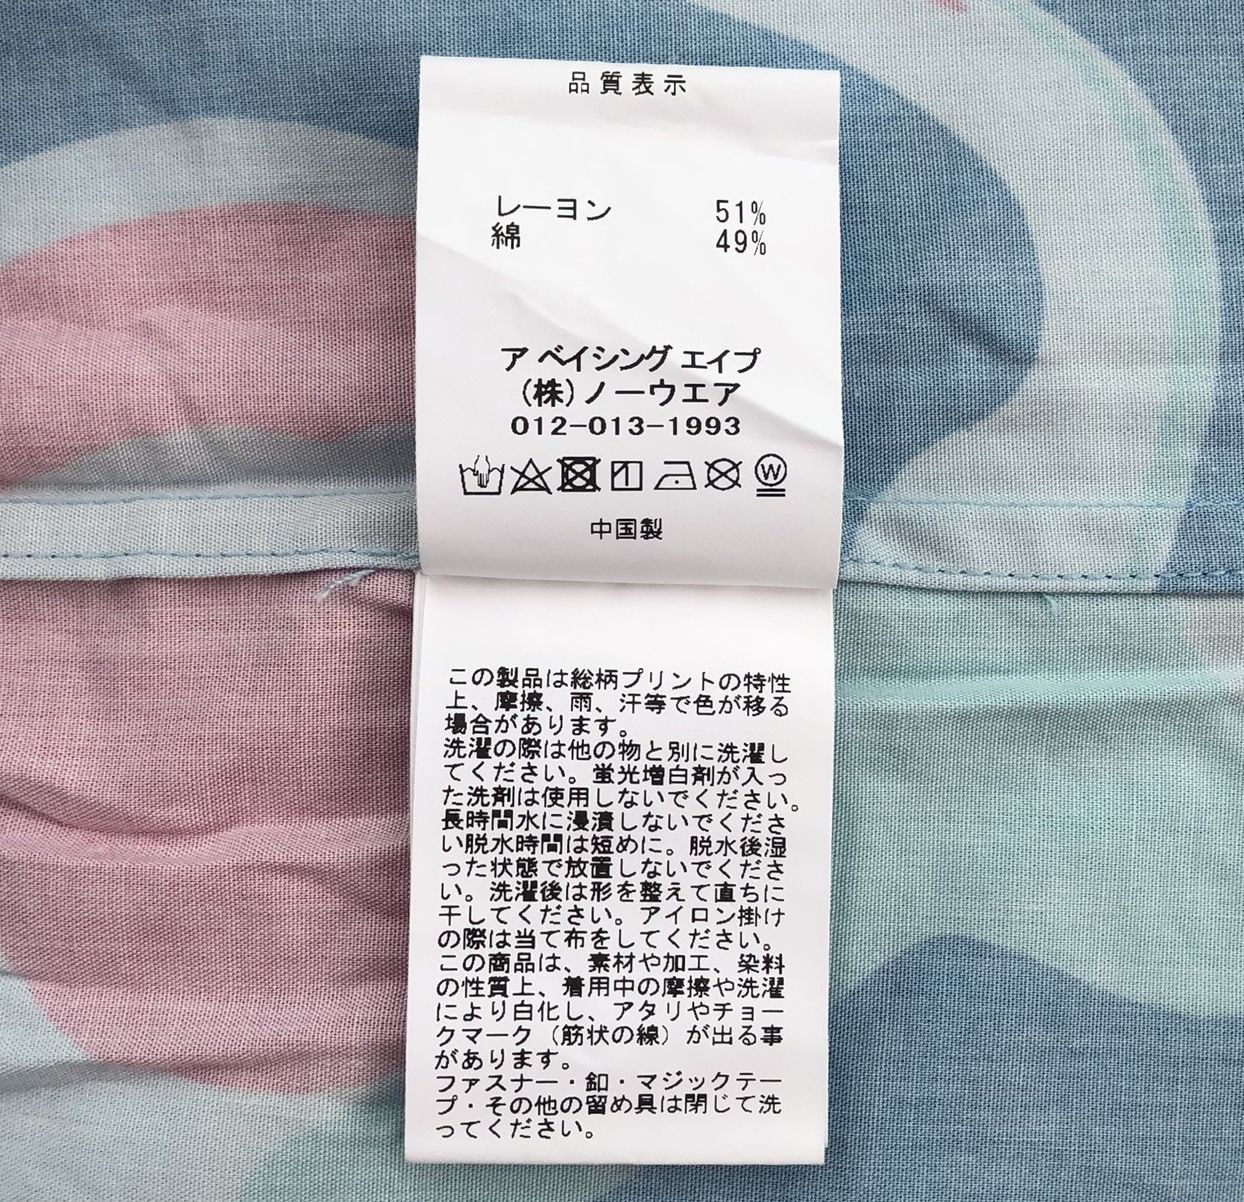 品質表示
レーヨン 51%
綿 49%
ア ベイシング エイプ
(株)ノーウエア
012-013-1993
W
中国製
この製品は総柄プリントの特性
上、摩擦、雨、汗等で色が移る
場合があります。
洗濯の際は他の物と別に洗濯し
てください。蛍光増白剤が入っ
た洗剤は使用しないでください。
長時間水に浸漬しないでくださ
い脱水時間は短めに。脱水後湿
った状態で放置しないでくださ
い。洗濯後は形を整えて直ちに
干してください。アイロン掛け
の際は当て布をしてください。
この商品は、素材や加工、染料
の性質上、着用中の摩擦や洗濯
により白化し、アタリやチョー
クマーク（筋状の線）が出る事
があります。
ファスナー・釦・マジックテー
プ・その他の留め具は閉じて洗
ってください。